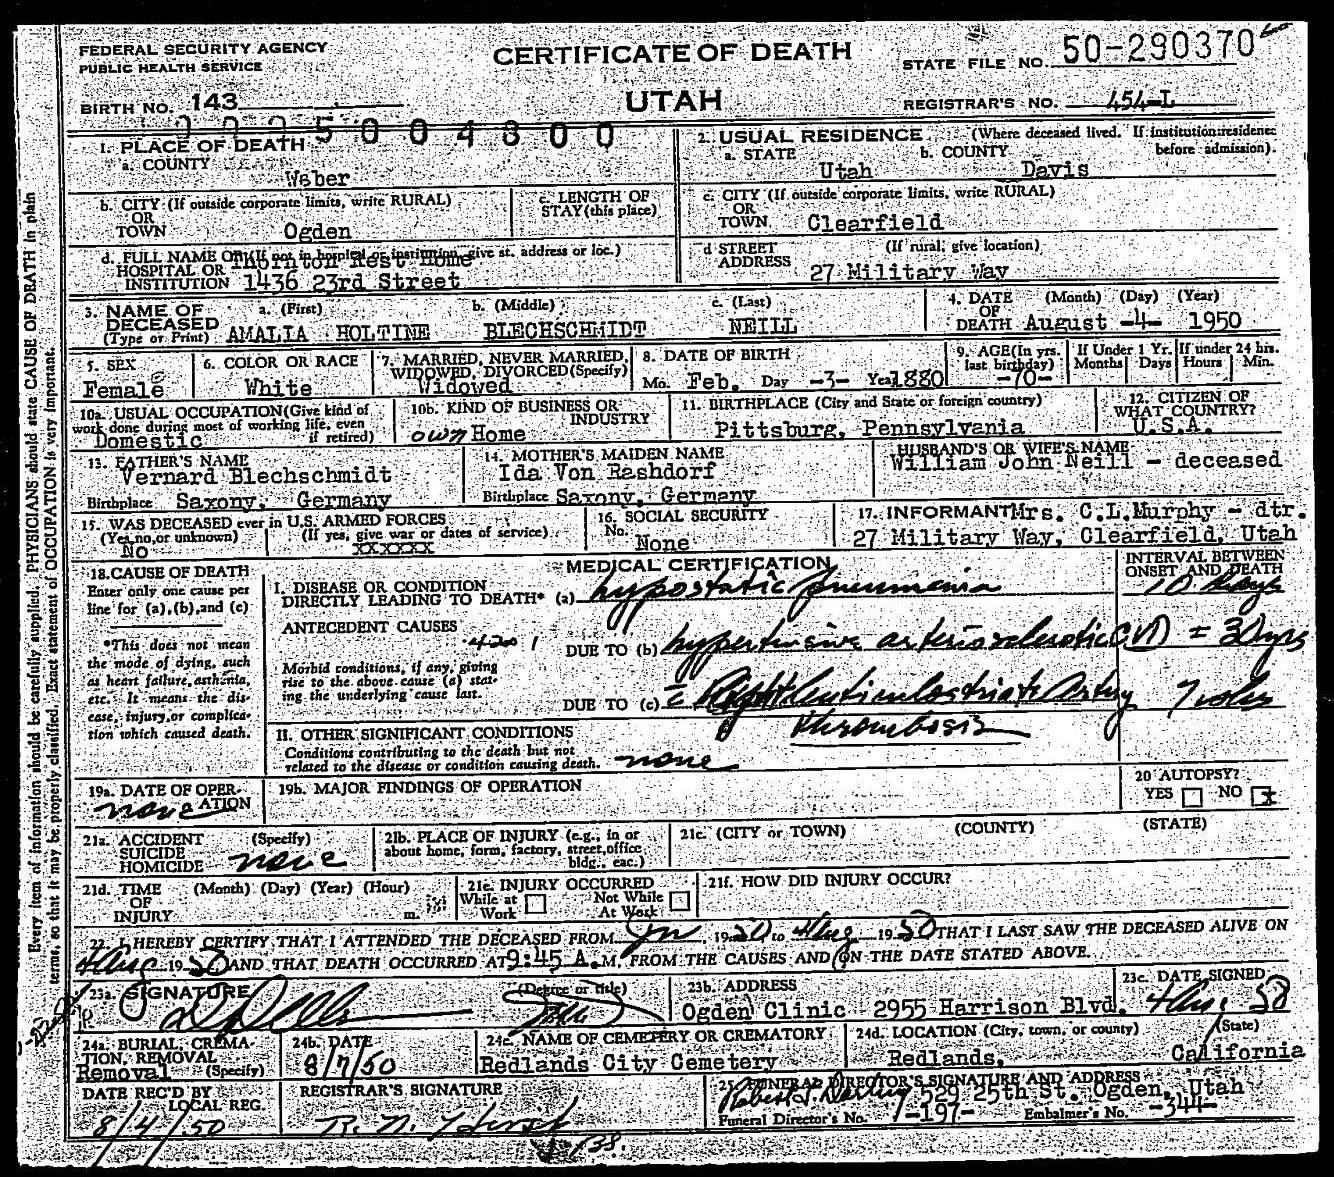 FEDERAL SECURITY AGENCY
PUBLIC HEALTH SERVICE
CERTIFICATE OF DEATH
STATE FILE NO. 50-290370
BIRTH NO. 143
UTAH
REGISTRAR'S NO. 454-L
5004300
1. PLACE OF DEATH
a. COUNTY Weber
2. USUAL RESIDENCE (Where deceased lived. If institution: residence before admission).
a. STATE Utah b. COUNTY Davis
b. CITY (If outside corporate limits, write RURAL)
OR
TOWN Ogden
c. LENGTH OF
STAY (this place)
c. CITY (If outside corporate limits, write RURAL)
OR
TOWN Clearfield
d. FULL NAME OF (If not in hospital or institution, give st. address or loc.)
HOSPITAL OR Thornton Rest Home
INSTITUTION 1436 23rd Street
d STREET (If rural, give location)
ADDRESS 27 Military Way
3. NAME OF a. (First) b. (Middle) c. (Last)
DECEASED
(Type or Print) AMALIA HOLTINE BLECHSCHMIDT NEILL
4. DATE (Month) (Day) (Year)
OF
DEATH August -4- 1950
5. SEX
Female
6. COLOR OR RACE
White
7. MARRIED, NEVER MARRIED,
WIDOWED, DIVORCED (Specify)
Widowed
8. DATE OF BIRTH
Mo. Feb. Day -3- Year 1880
9. AGE (In yrs.
last birthday)
-70-
If Under 1 Yr.
Months Days
If under 24 hrs.
Hours Min.
10a. USUAL OCCUPATION (Give kind of
work done during most of working life, even
if retired)
Domestic
10b. KIND OF BUSINESS OR
INDUSTRY
own Home
11. BIRTHPLACE (City and State or foreign country)
Pittsburg, Pennsylvania
12. CITIZEN OF
WHAT COUNTRY?
U.S.A.
13. FATHER'S NAME
Vernard Blechschmidt
Birthplace Saxony, Germany
14. MOTHER'S MAIDEN NAME
Ida Von Rashdorf
Birthplace Saxony, Germany
HUSBAND'S OR WIFE'S NAME
William John Neill - deceased
15. WAS DECEASED ever in U.S. ARMED FORCES
(Yes, no, or unknown) (If yes, give war or dates of service)
No xxxxxx
16. SOCIAL SECURITY
No. None
17. INFORMANT Mrs. C.L. Murphy - dtr.
27 Military Way, Clearfield, Utah
18. CAUSE OF DEATH
Enter only one cause per
line for (a), (b), and (c)
*This does not mean
the mode of dying, such
as heart failure, asthenia,
etc. It means the dis-
ease, injury, or complica-
tion which caused death.
MEDICAL CERTIFICATION
INTERVAL BETWEEN
ONSET AND DEATH
I. DISEASE OR CONDITION
DIRECTLY LEADING TO DEATH* (a) hypostatic pneumonia 10 days
ANTECEDENT CAUSES
420 1
DUE TO (b) hypertensive arteriosclerotic CVD = 30 yrs
Morbid conditions, if any, giving
rise to the above cause (a) stat-
ing the underlying cause last.
DUE TO (c) c Right Lenticulostriate Artery 7 wks
Thrombosis
II. OTHER SIGNIFICANT CONDITIONS
Conditions contributing to the death but not
related to the disease or condition causing death. none
19a. DATE OF OPER-
ATION
none
19b. MAJOR FINDINGS OF OPERATION
20 AUTOPSY?
YES NO x
21a. ACCIDENT (Specify)
SUICIDE
HOMICIDE none
21b. PLACE OF INJURY (e.g., in or
about home, form, factory, street, office
bldg., eac.)
21c. (CITY or TOWN) (COUNTY) (STATE)
21d. TIME (Month) (Day) (Year) (Hour)
OF
INJURY m.
21e. INJURY OCCURRED
While at Work Not While At Work
21f. HOW DID INJURY OCCUR?
22. I HEREBY CERTIFY THAT I ATTENDED THE DECEASED FROM Jn, 1950, to 4 Aug, 1950 THAT I LAST SAW THE DECEASED ALIVE ON
4 Aug 1950 AND THAT DEATH OCCURRED AT 9:45 A.M. FROM THE CAUSES AND ON THE DATE STATED ABOVE.
23a. SIGNATURE (Degree or title)
23b. ADDRESS
Ogden Clinic 2955 Harrison Blvd.
23c. DATE SIGNED
4 Aug 50
24a. BURIAL, CREMA-
TION, REMOVAL
Removal (Specify)
24b. DATE
8/7/50
24c. NAME OF CEMETERY OR CREMATORY
Redlands City Cemetery
24d. LOCATION (City, town, or county) (State)
Redlands, California
DATE REC'D BY
LOCAL REG.
8/4/50
REGISTRAR'S SIGNATURE
25. FUNERAL DIRECTOR'S SIGNATURE AND ADDRESS
529 25th St. Ogden, Utah
Funeral Director's No. -197- Embalmer's No. -344-
Every item of information should be carefully supplied. PHYSICIANS should state CAUSE OF DEATH in plain
terms, so that it may be properly classified. Exact statement of OCCUPATION is very important.